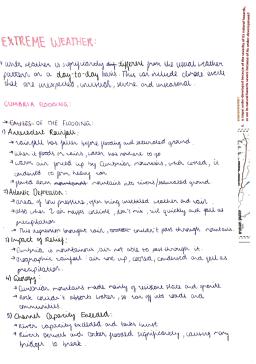 EXTREME WEATHER:
• when weather is significantly different from the usual weather
pattern on a day-to-day basis. This can include climate events
that are unexpected, unusual, severe and unseasonal.
CUMBRIA FLOODING:
→ CAUSES OF THE FLOODING:
1) Antecedent Rainfall:
→ rainfall has fallen before flooding and saturated ground
→ when it floods or rains, water has nowhere to go
→ warm air forced up by Cumbrian mountains, when cooled, it
condensed to form heavy rain
→ forced down mountains into rivers/saturated ground
2) Atlantic Depression:
→ area of low pressure, often bring unsettled weather and rain
→ also when 2 air masses collide, don't mix, but quickly and fall as
precipitation
→ This depression brought rain, couldn't pass through mountains.
3) Impact of Relief:
→ Cumbria is mountainous, air not able to pass through it.
→ Orographic rainfall: air rose up, cooled, condensed and fell as
precipitation.
4) Geology
→ Cumbrian mountains made mainly of resistant slate and granite
→ Rock couldn't absorb water, so ran off into roads and
communities.
5) Channel Capacity Exceeded:
→ River capacity exceeded and banks burst
→ Rivers Derwent and Cocker flooded significantly, causing many
bridges to break.